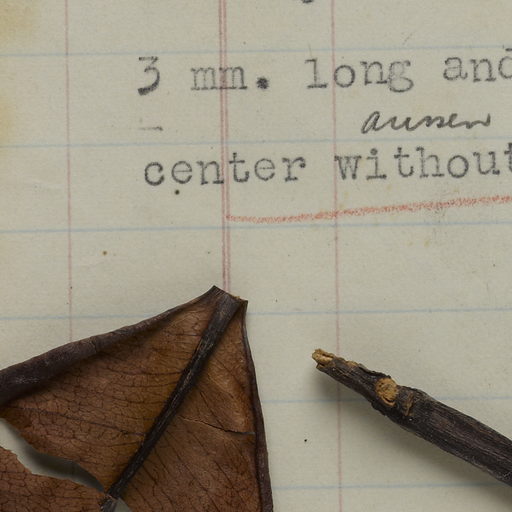 3 mm. long and
aussen
center without